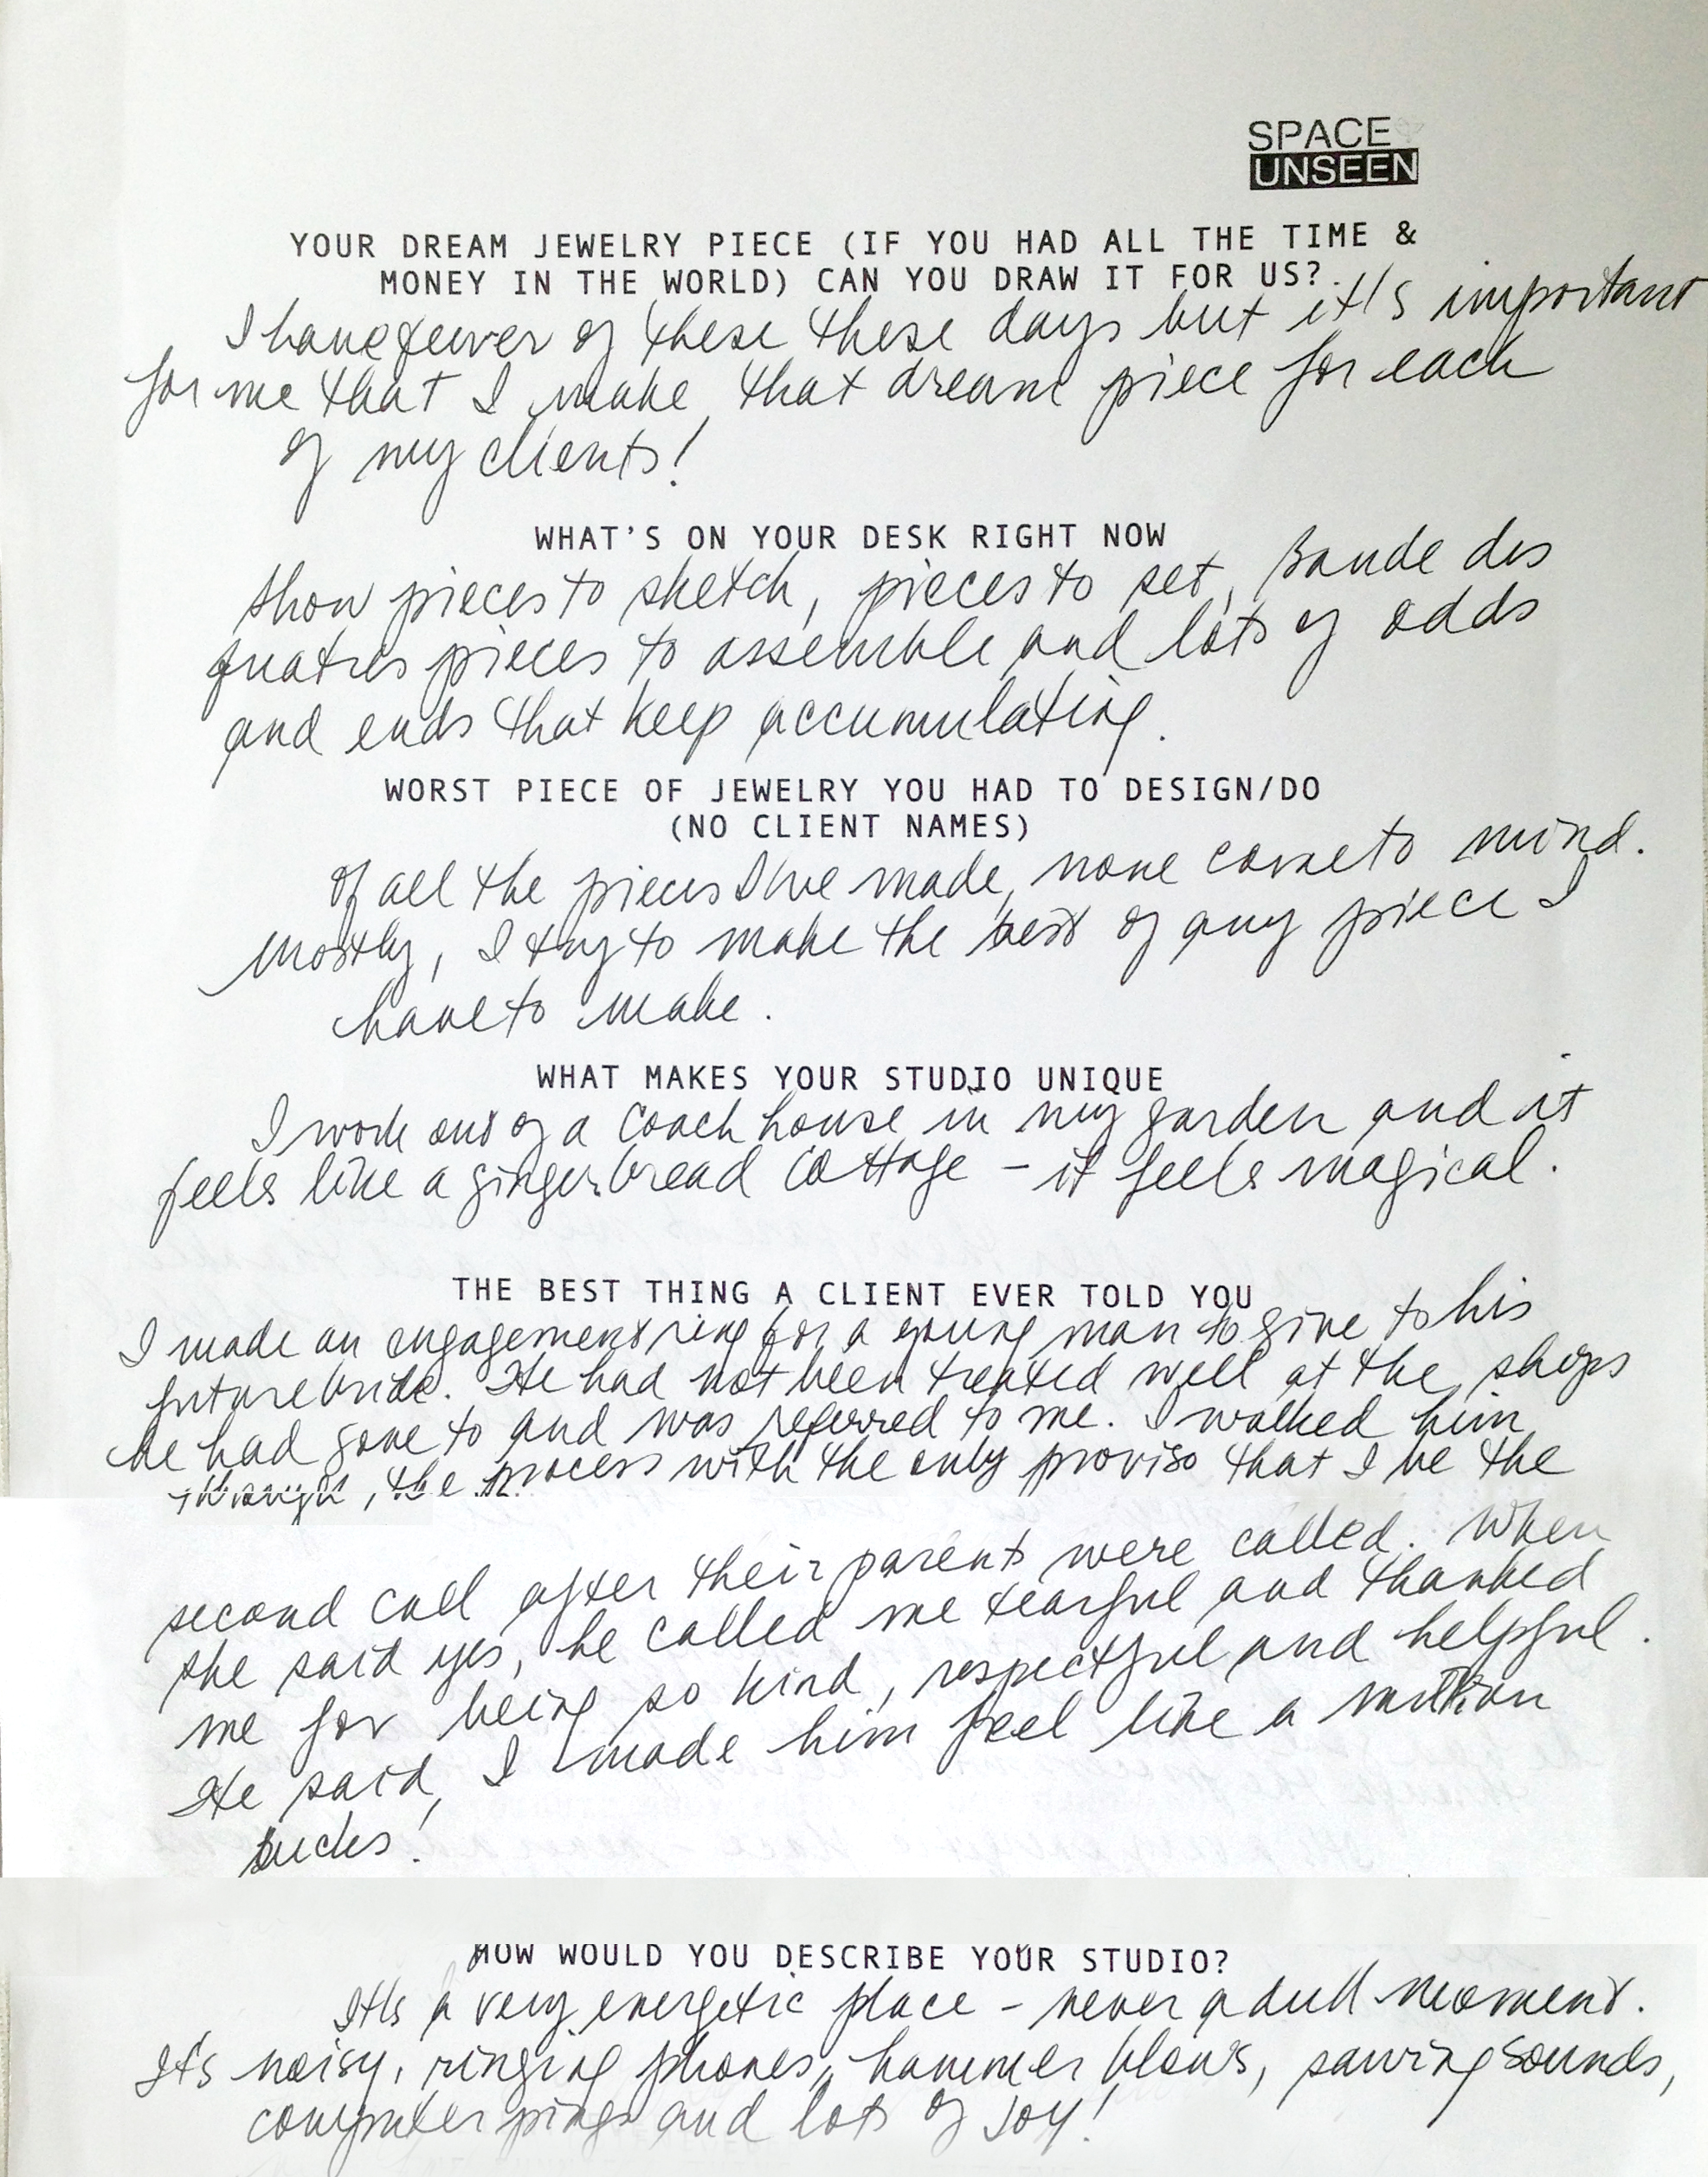 SPACE
UNSEEN
YOUR DREAM JEWELRY PIECE (IF YOU HAD ALL THE TIME &
MONEY IN THE WORLD) CAN YOU DRAW IT FOR US?
I have fewer of these these days but it's important
for me that I make that dream piece for each
of my clients!
WHAT'S ON YOUR DESK RIGHT NOW
Show pieces to sketch, pieces to set, Bande des
quatres pieces to assemble and lots of odds
and ends that keep accumulating.
WORST PIECE OF JEWELRY YOU HAD TO DESIGN/DO
(NO CLIENT NAMES)
Of all the pieces I've made, none come to mind.
Mostly, I try to make the best of any piece I
have to make.
WHAT MAKES YOUR STUDIO UNIQUE
I work out of a Coach house in my garden and it
feels like a gingerbread cottage – it feels magical.
THE BEST THING A CLIENT EVER TOLD YOU
I made an engagement ring for a young man to give to his
future bride. He had not been treated well at the shops
he had gone to and was referred to me. I walked him
through the process with the only proviso that I be the
second call after their parents were called. When
she said yes, he called me tearful and thanked
me for being so kind, respectful and helpful.
He said, I made him feel like a million
bucks!
HOW WOULD YOU DESCRIBE YOUR STUDIO?
It's a very energetic place – never a dull moment.
It's noisy, ringing phones, hammer blows, sawing sounds,
computer pings and lots of joy!